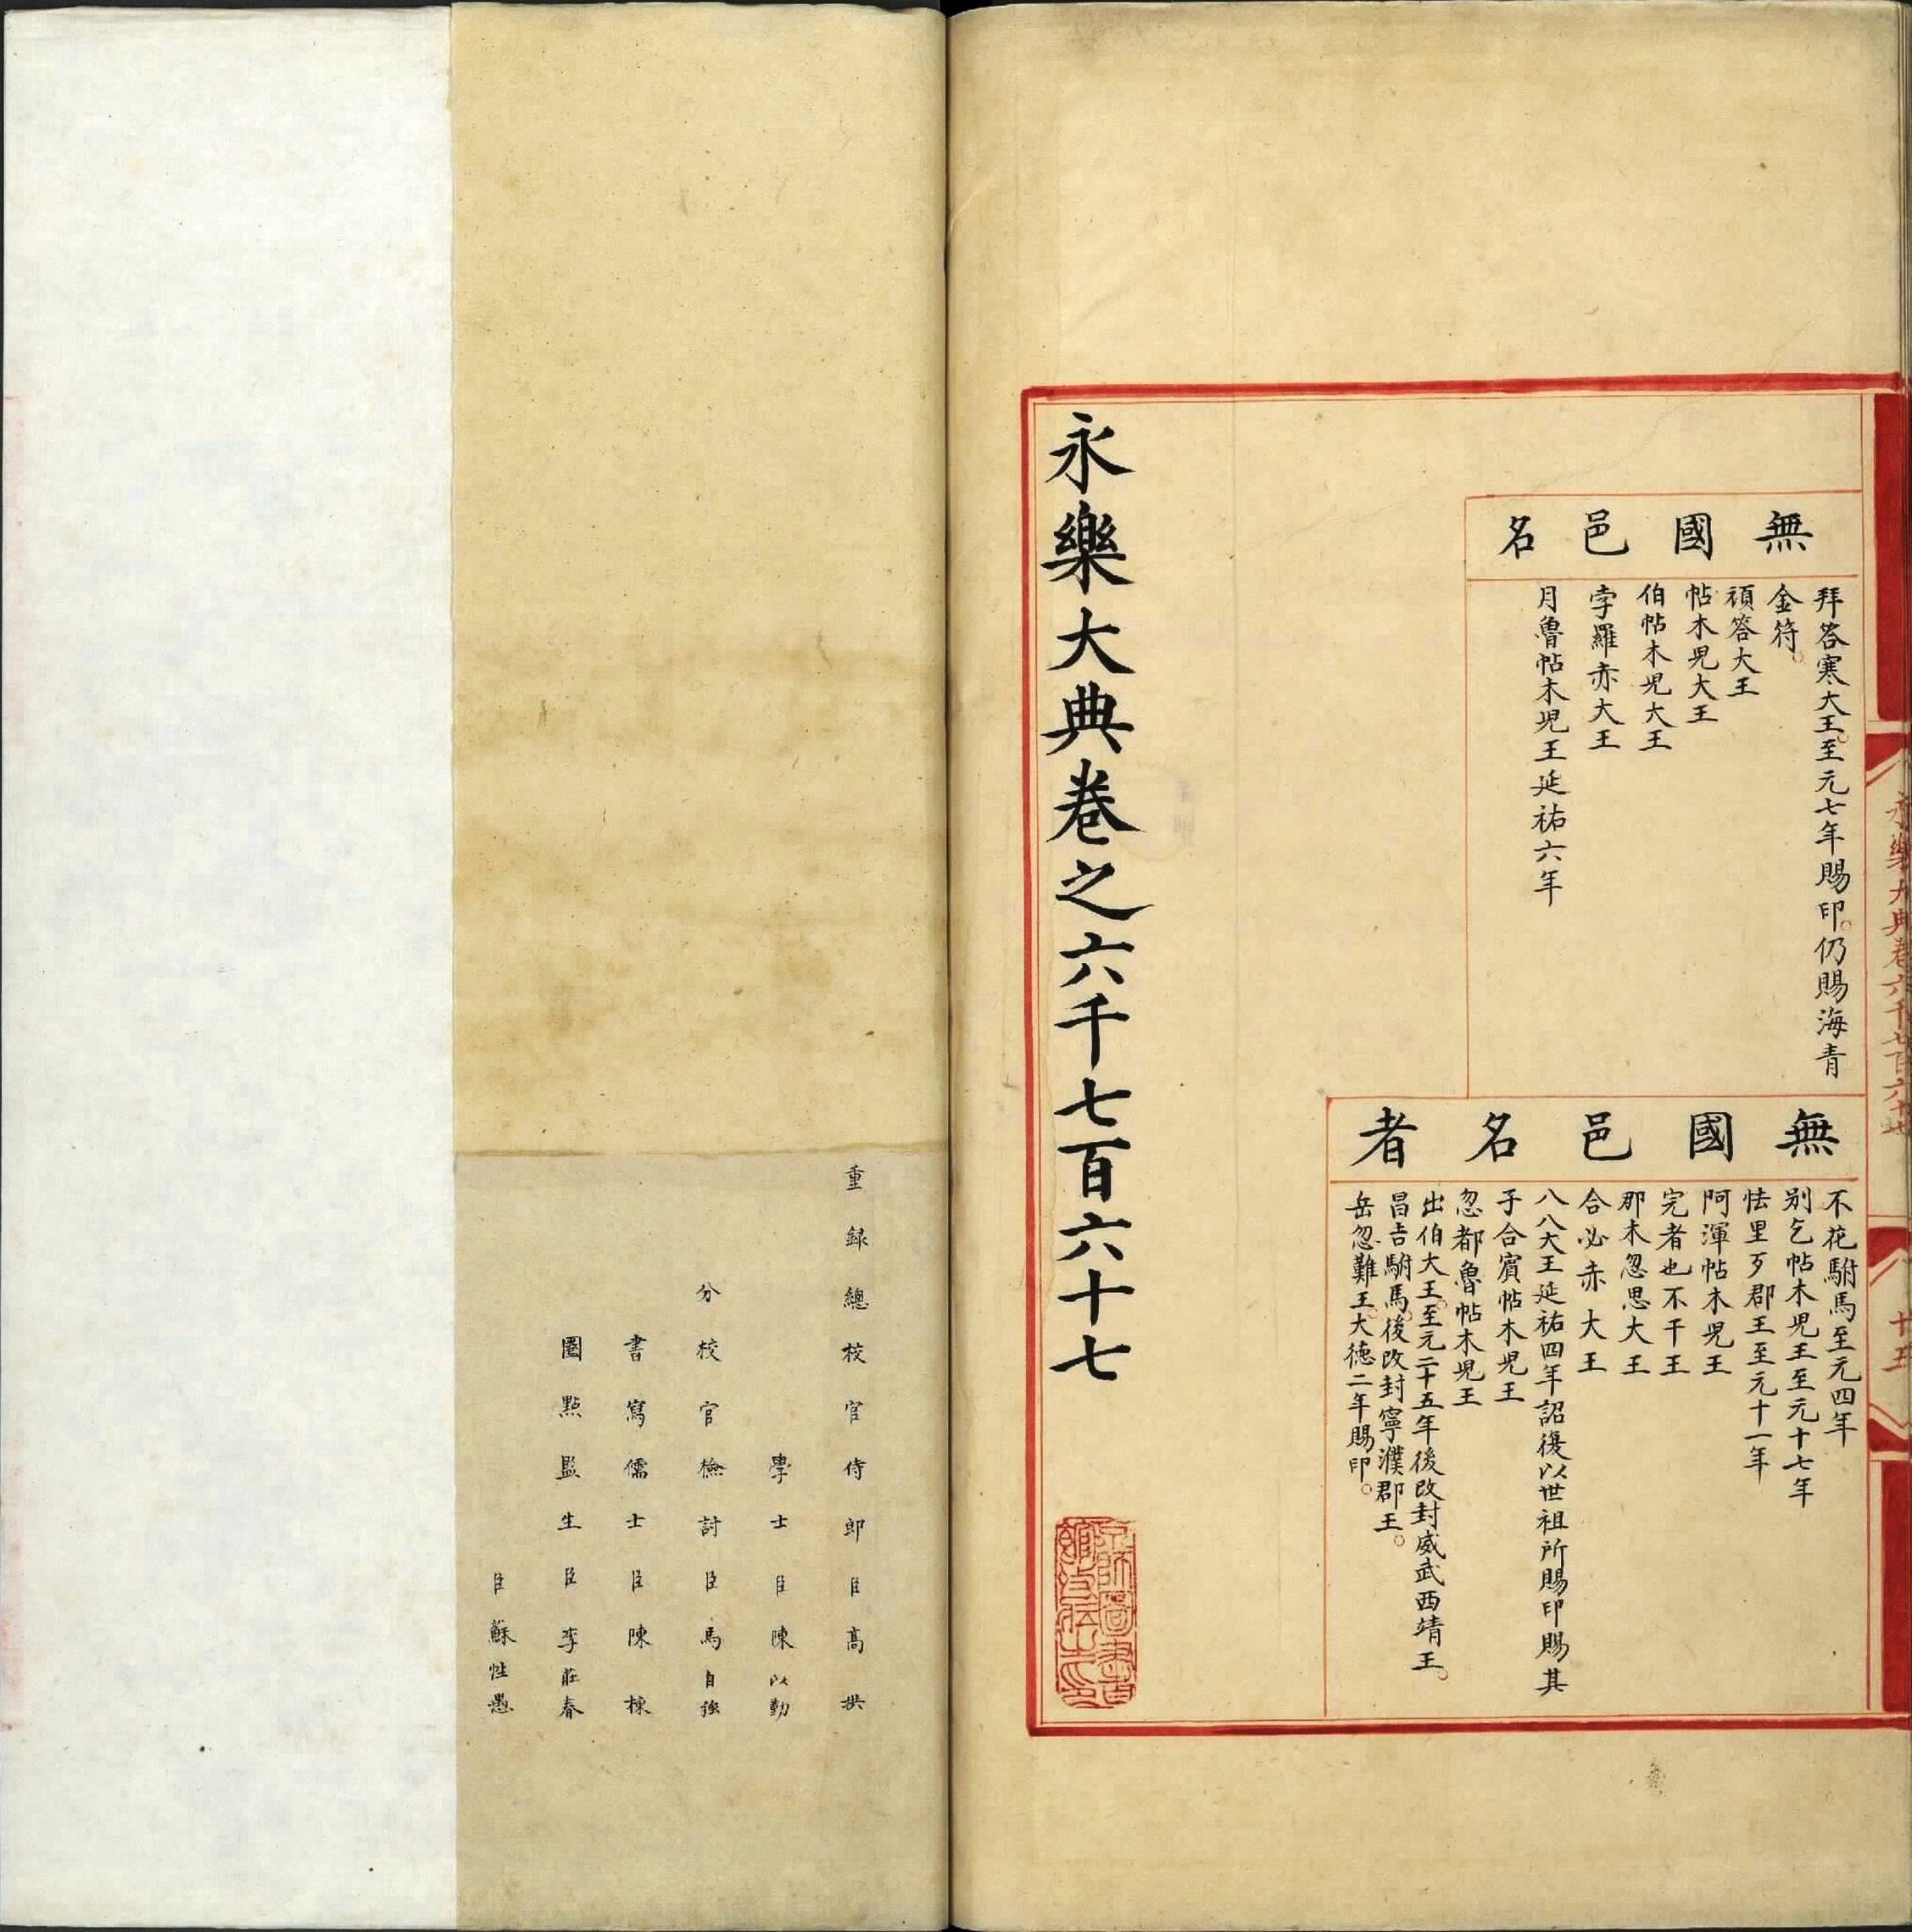 永樂大典卷六千七百六十七
十五
無國邑名
拜答寒大王至元七年賜印仍賜海青
金符
頑答大王
帖木兒大王
伯帖木兒大王
孛羅赤大王
月魯帖木兒王延祐六年
無國邑名者
不花駙馬至元四年
別乞帖木兒王至元十七年
怯里歹郡王至元十一年
阿渾帖木兒王
完者也不干王
郡木忽思大王
合必赤大王
八八大王延祐四年詔復以世祖所賜印賜其
子合賓帖木兒王
忽都魯帖木兒王
出伯大王至元二十五年後改封威武西靖王
昌吉駙馬後改封寧濮郡王
岳忽難王大德二年賜印
永樂大典卷之六千七百六十七
京師圖書館收藏之印
重錄總校官侍郎臣高拱
學士臣陳以勤
分校官檢討臣馬自強
書寫儒士臣陳棟
圈點監生臣李莊春
臣蘇性愚